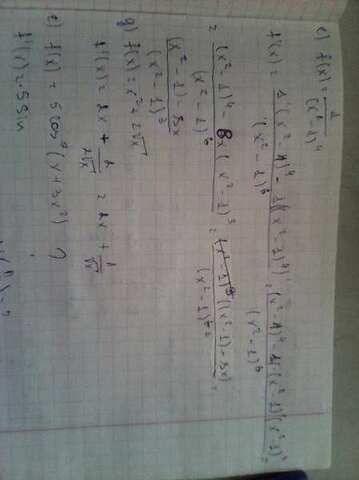 c) f(x) = 1/(x²-1)⁴
f'(x) = (1'(x²-1)⁴ - 1((x²-1)⁴)')/(x²-1)⁶ = ((x²-1)⁴ - 4(x²-1)(x²-1)³)/(x²-1)⁶ =
= ((x²-1)⁴ - 8x(x²-1)³)/(x²-1)⁶ = ((x²-1)³((x²-1)-8x))/(x²-1)⁶ =
((x²-1)-8x)/(x²-1)³
g) f(x) = x² + 2√x
f'(x) = 2x + 2/2√x = 2x + 1/√x
e) f(x) = 5 cos⁹(x+3x²) ?
f'(x) = 5 Sin